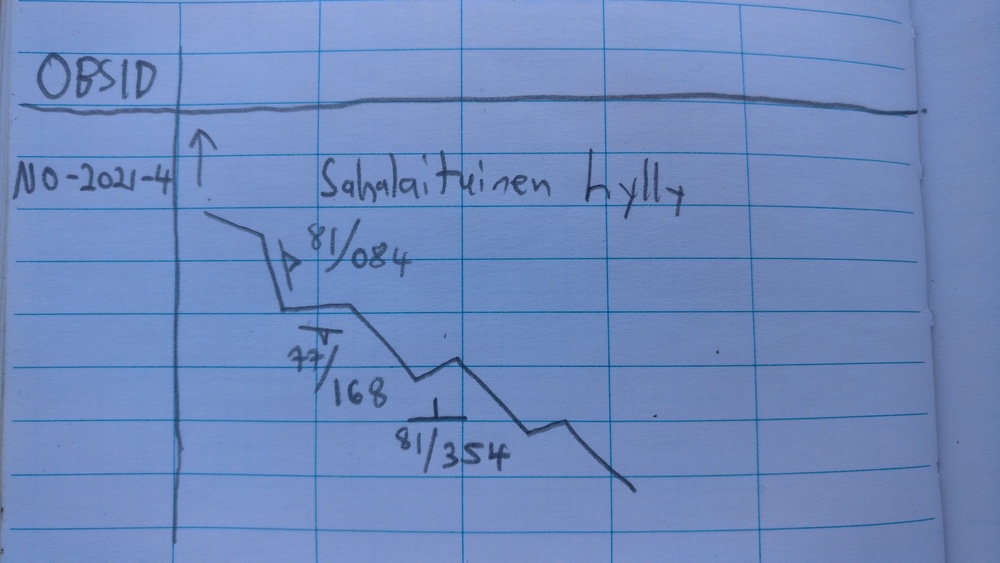 OBSID
NO-2021-4
Sahalaituinen hylly
81/084
77/168
81/354